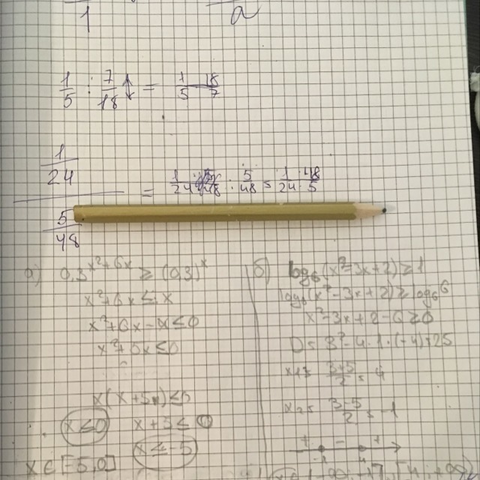 1/5 : 7/18 ↕ = 1/5 18/7
1/24 / 5/48 = 1/24 : 5/48 = 1/24 · 48/5
а) 0,3^(x²+6x) ≥ (0,3)^x
x²+6x ≤ x
x²+6x-x ≤ 0
x²+5x ≤ 0
x(x+5) ≤ 0
x ≤ 0 x+5 ≤ 0
x ≤ -5
x ∈ [-5,0]
б) log₆(x²-3x+2) ≥ 1
log₆(x²-3x+2) ≥ log₆6
x²-3x+2-6 ≥ 0
D = 3²-4·1·(-4) = 25
x₁ = (3+5)/2 = 4
x₂ = (3-5)/2 = -1
+ - +